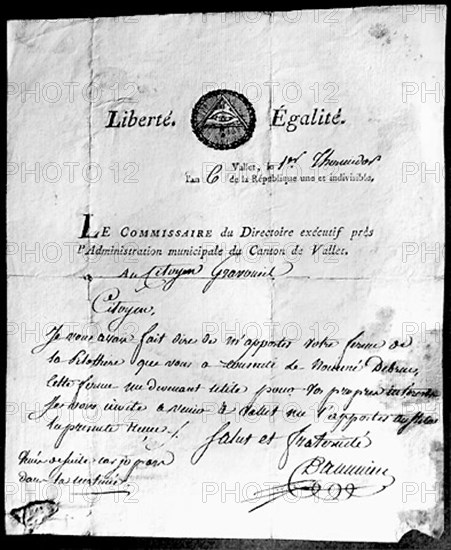 Liberté. Égalité.
Vallet, le 1er Thermidor
l'an 6 de la République une et indivisible.
LE COMMISSAIRE du Directoire exécutif près
l'Administration municipale du Canton de Vallet.
Au Citoyen Gravoueil
Citoyen,
Je vous avais fait dire de m'apporter votre ferme de
la que vous a de Debruc,
cette ferme me devenant utile pour vos propres interets
Je vous invite a venir à Vallet me l'apporter aussitot
la presente
Salut et fraternité
de suite car je pars
dans la